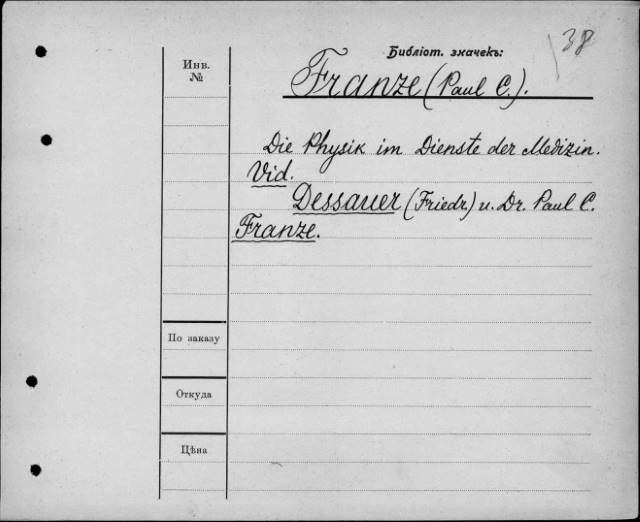 Библіот. значекъ:
38
Инв.
№
Franze (Paul C.).
Die Physik im Dienste der Medizin.
Vid.
Dessauer (Friedr.) u. Dr. Paul C.
Franze.
По заказу
Откуда
Цѣна